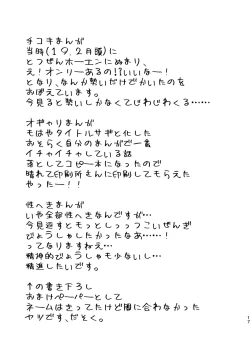 手コキまんが
当時(19.2月頭)に
とつぜんホーエンにぬまり、
え!オンリーあるの!?いいなー!
となり、なんか勢いだけでかいたのを
おぼえています。
今見ると勢いしかなくてじわじわくる……
オギャりまんが
もはやタイトルサギと化した
おそらく自分のまんがで一番
イチャイチャしている話
落としてコピー本になったので
晴れて印刷所さんに印刷してもらえた
やったー!!
性へきまんが
いや全部性へきなんですが…
今見返すともっとしっっつこいぜんぎ
びょうしゃしたかったなあ…!
ってなりますねえ…
精神的びょうしゃも少ないし…
精進したいです。
↑の書き下ろし
おまけペーパーとして
ネームはきってたけど間に合わなかった
ヤツです、だそく。